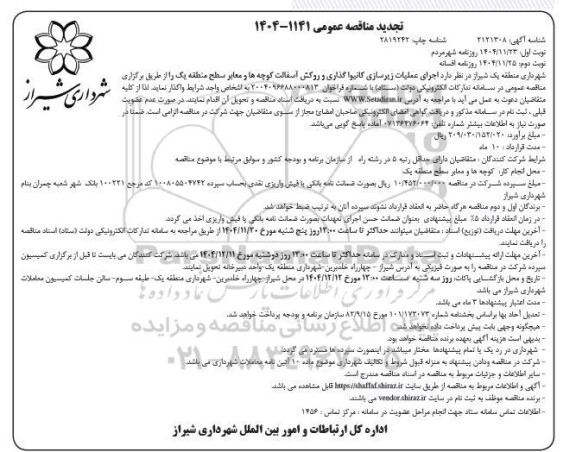 تجدید مناقصه عمومی ۱۱۴۱-۱۴۰۴
شناسه آگهی: ۲۱۲۱۳۰۸ شناسه چاپ: ۲۸۱۹۲۴۲
نوبت اول: ۱۴۰۴/۱۱/۲۳ روزنامه شهرمردم
نوبت دوم: ۱۴۰۴/۱۱/۲۵ روزنامه افسانه
شهرداری شیراز
شهرداری منطقه یک شیراز در نظر دارد اجرای عملیات زیرسازی کانیوا گذاری و روکش آسفالت کوچه ها و معابر سطح منطقه یک را از طریق برگزاری
مناقصه عمومی در سامانه تدارکات الکترونیکی دولت (ستاد) با شماره فراخوان ۲۰۰۴۰۹۶۶۸۸۰۰۰۸۱۳ به اشخاص واجد شرایط واگذار نماید. لذا از کلیه
متقاضیان دعوت به عمل می آید با مراجعه به آدرس WWW.Setadiran.ir نسبت به دریافت اسناد مناقصه و تحویل آن اقدام نمایند. در صورت عدم عضویت
قبلی، ثبت نام در سامانه مذکور و دریافت گواهی امضای الکترونیکی صاحبان امضای مجاز از سوی متقاضیان جهت شرکت در مناقصه الزامی است. ضمنا در
صورت نیاز به اطلاعات بیشتر شماره تلفن: ۰۷۱۳۶۲۷۶۰۶۴ آماده پاسخ گویی می‌باشد.
- مبلغ برآورد: ۲۰۹/۰۳۰/۱۵۲/۰۲۰ ریال
- مدت قرارداد: ۱۰ ماه
شرایط شرکت کنندگان: متقاضیان دارای حداقل رتبه ۵ در رشته راه از سازمان برنامه و بودجه کشور و سوابق مرتبط با موضوع مناقصه
- محل انجام کار: کوچه ها و معابر سطح منطقه یک
- مبلغ سپرده شرکت در مناقصه ۱۰/۴۵۲/۰۰۰/۰۰۰ ریال بصورت ضمانت نامه بانکی یا فیش واریزی نقدی بحساب سپرده ۱۰۰۸۰۵۵۰۴۷۴۲ کد مرجع ۱۰۰۲۲۱ بانک شهر شعبه چمران بنام
شهرداری شیراز
- برندگان اول و دوم مناقصه هرگاه حاضر به انعقاد قرارداد نشوند سپرده آنان به ترتیب ضبط خواهد شد.
- در زمان انعقاد قرارداد ۵٪ مبلغ پیشنهادی بعنوان ضمانت حسن اجرای تعهدات بصورت ضمانت نامه بانکی یا فیش واریزی اخذ می گردد.
- آخرین مهلت دریافت (توزیع) اسناد: متقاضیان میتوانند حداکثر تا ساعت ۱۳:۰۰روز پنج شنبه مورخ ۱۴۰۴/۱۱/۳۰ از طریق مراجعه به سامانه تدارکات الکترونیکی دولت (ستاد) اسناد مناقصه
را دریافت نمایند.
- آخرین مهلت ارائه پیشنهادات و ثبت اسناد و مدارک در سامانه حداکثر تا ساعت ۱۳:۰۰ روز دوشنبه مورخ ۱۴۰۴/۱۲/۱۱ می باشد. شرکت کنندگان می بایست تا قبل از برگزاری کمیسیون
سپرده شرکت در مناقصه را به صورت فیزیکی به آدرس شیراز - چهارراه خلدبرین-شهرداری منطقه یک-واحد دبیرخانه تحویل نمایند.
- تاریخ و محل بازگشایی پاکات: روز سه شنبه ساعت ۱۳:۰۰ مورخ ۱۴۰۴/۱۲/۱۲ در محل شیراز-چهارراه خلدبرین- شهرداری منطقه یک- طبقه سوم- سالن جلسات کمیسیون معاملات
شهرداری شیراز می باشد.
- مدت اعتبار پیشنهادها ۳ ماه می باشد.
- تعدیل آحاد بها براساس بخشنامه شماره ۱۰۱/۱۷۳۰۷۳ مورخ ۸۲/۹/۱۵ سازمان برنامه و بودجه پرداخت خواهد شد.
- هیچگونه وجهی بابت پیش پرداخت داده نخواهد شد.
- بدیهی است هزینه آگهی بعهده برنده مناقصه خواهد بود.
- شهرداری در رد یک یا تمام پیشنهادها مختار میباشد در اینصورت سپرده ها مسترد می گردد.
- شرکت در مناقصه ودادن پیشنهاد به منزله قبول شروط و تکالیف شهرداری موضوع ماده ۱۰ آئین نامه معاملات شهرداری می باشد.
- سایر اطلاعات و جزئیات مربوط به مناقصه در اسناد مناقصه مندرج است.
- آگهی و اطلاعات مربوط به مناقصه از طریق سایت https://shaffaf.shiraz.ir قابل مشاهده می باشد.
- برنده مناقصه موظف به ثبت نام در سایت vendor.shiraz.ir می باشد.
- اطلاعات تماس سامانه ستاد جهت انجام مراحل عضویت در سامانه: مرکز تماس: ۱۴۵۶
اداره کل ارتباطات و امور بین الملل شهرداری شیراز